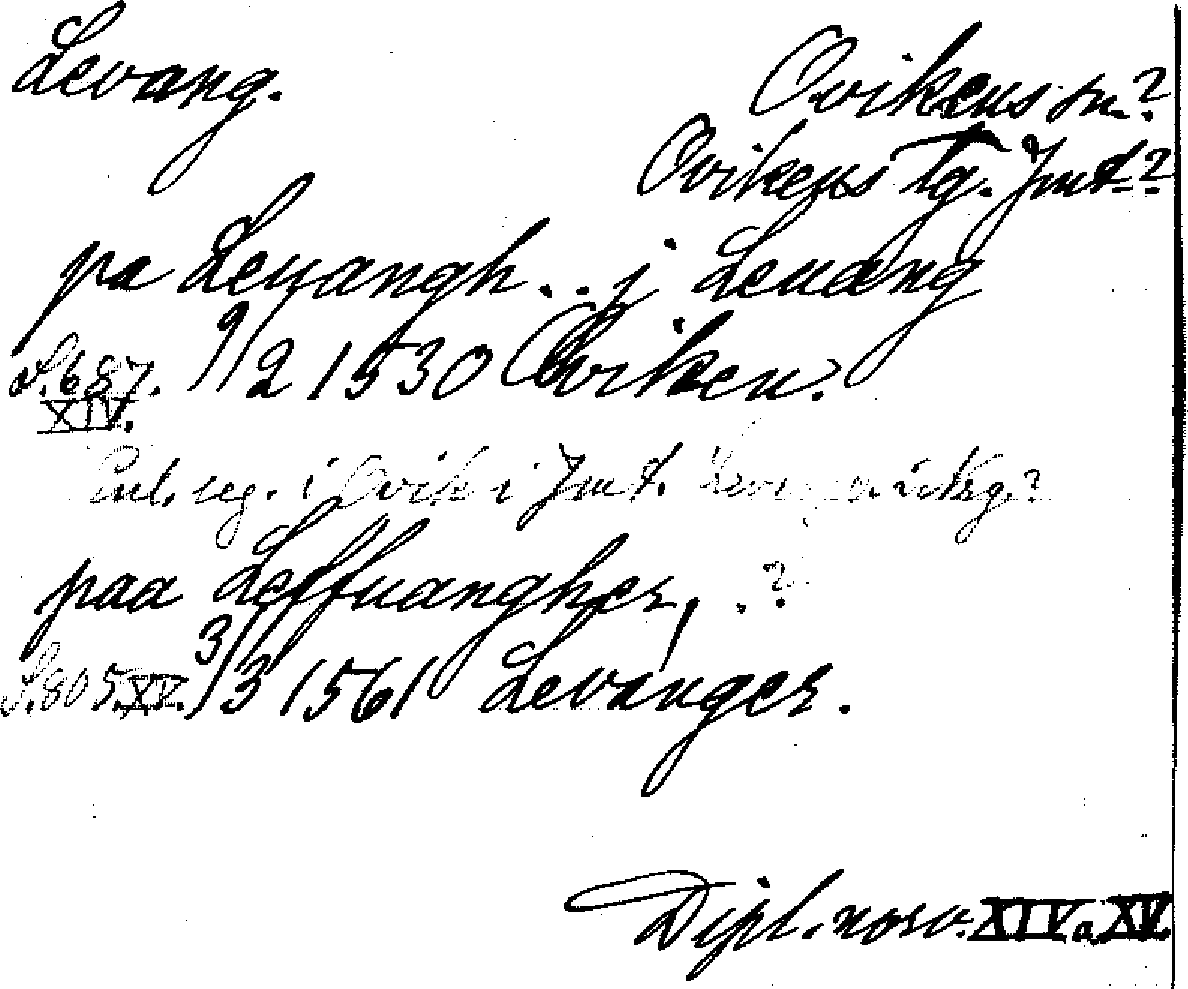 Levang.
Ovikens sn.?
Ovikens tg. Jmt.?
pa Leuangh... j Leuang
S. 687. 9/2 1530 Oviken.
XIV.
Enl. reg. i Ovik i Jmt.
paa Leffuangher, . ?
S. 805 XV. 3/3 1561 Levanger.
Dipl. norv. XIV a XV.